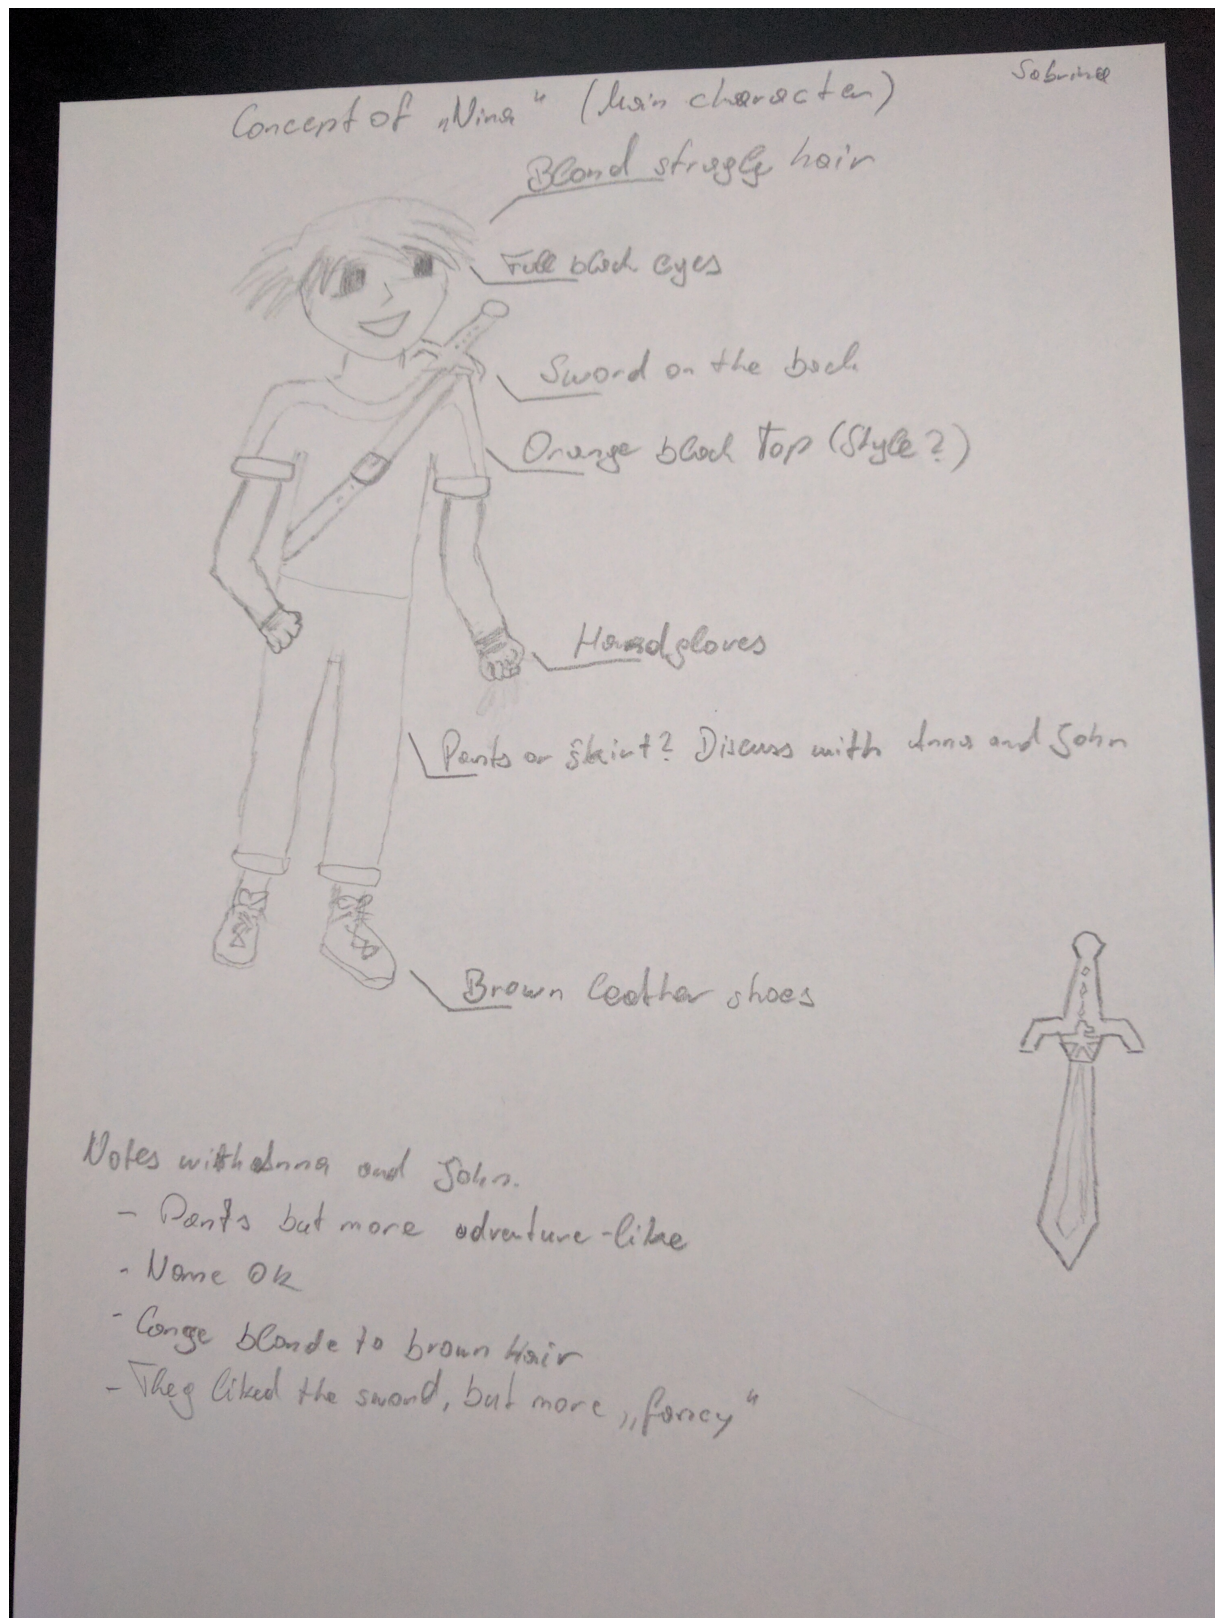 Sabrina
Concept of „Nina“ (Main character)
Blond stragly hair
Full black eyes
Sword on the back
Orange black Top (Style?)
Handgloves
Pants or Skirt? Discuss with Anna and John
Brown leather shoes
Notes with Anna and John.
- Pants but more adventure-like
- Name Ok
- Cange blonde to brown Hair
- They liked the sword, but more „fancy“